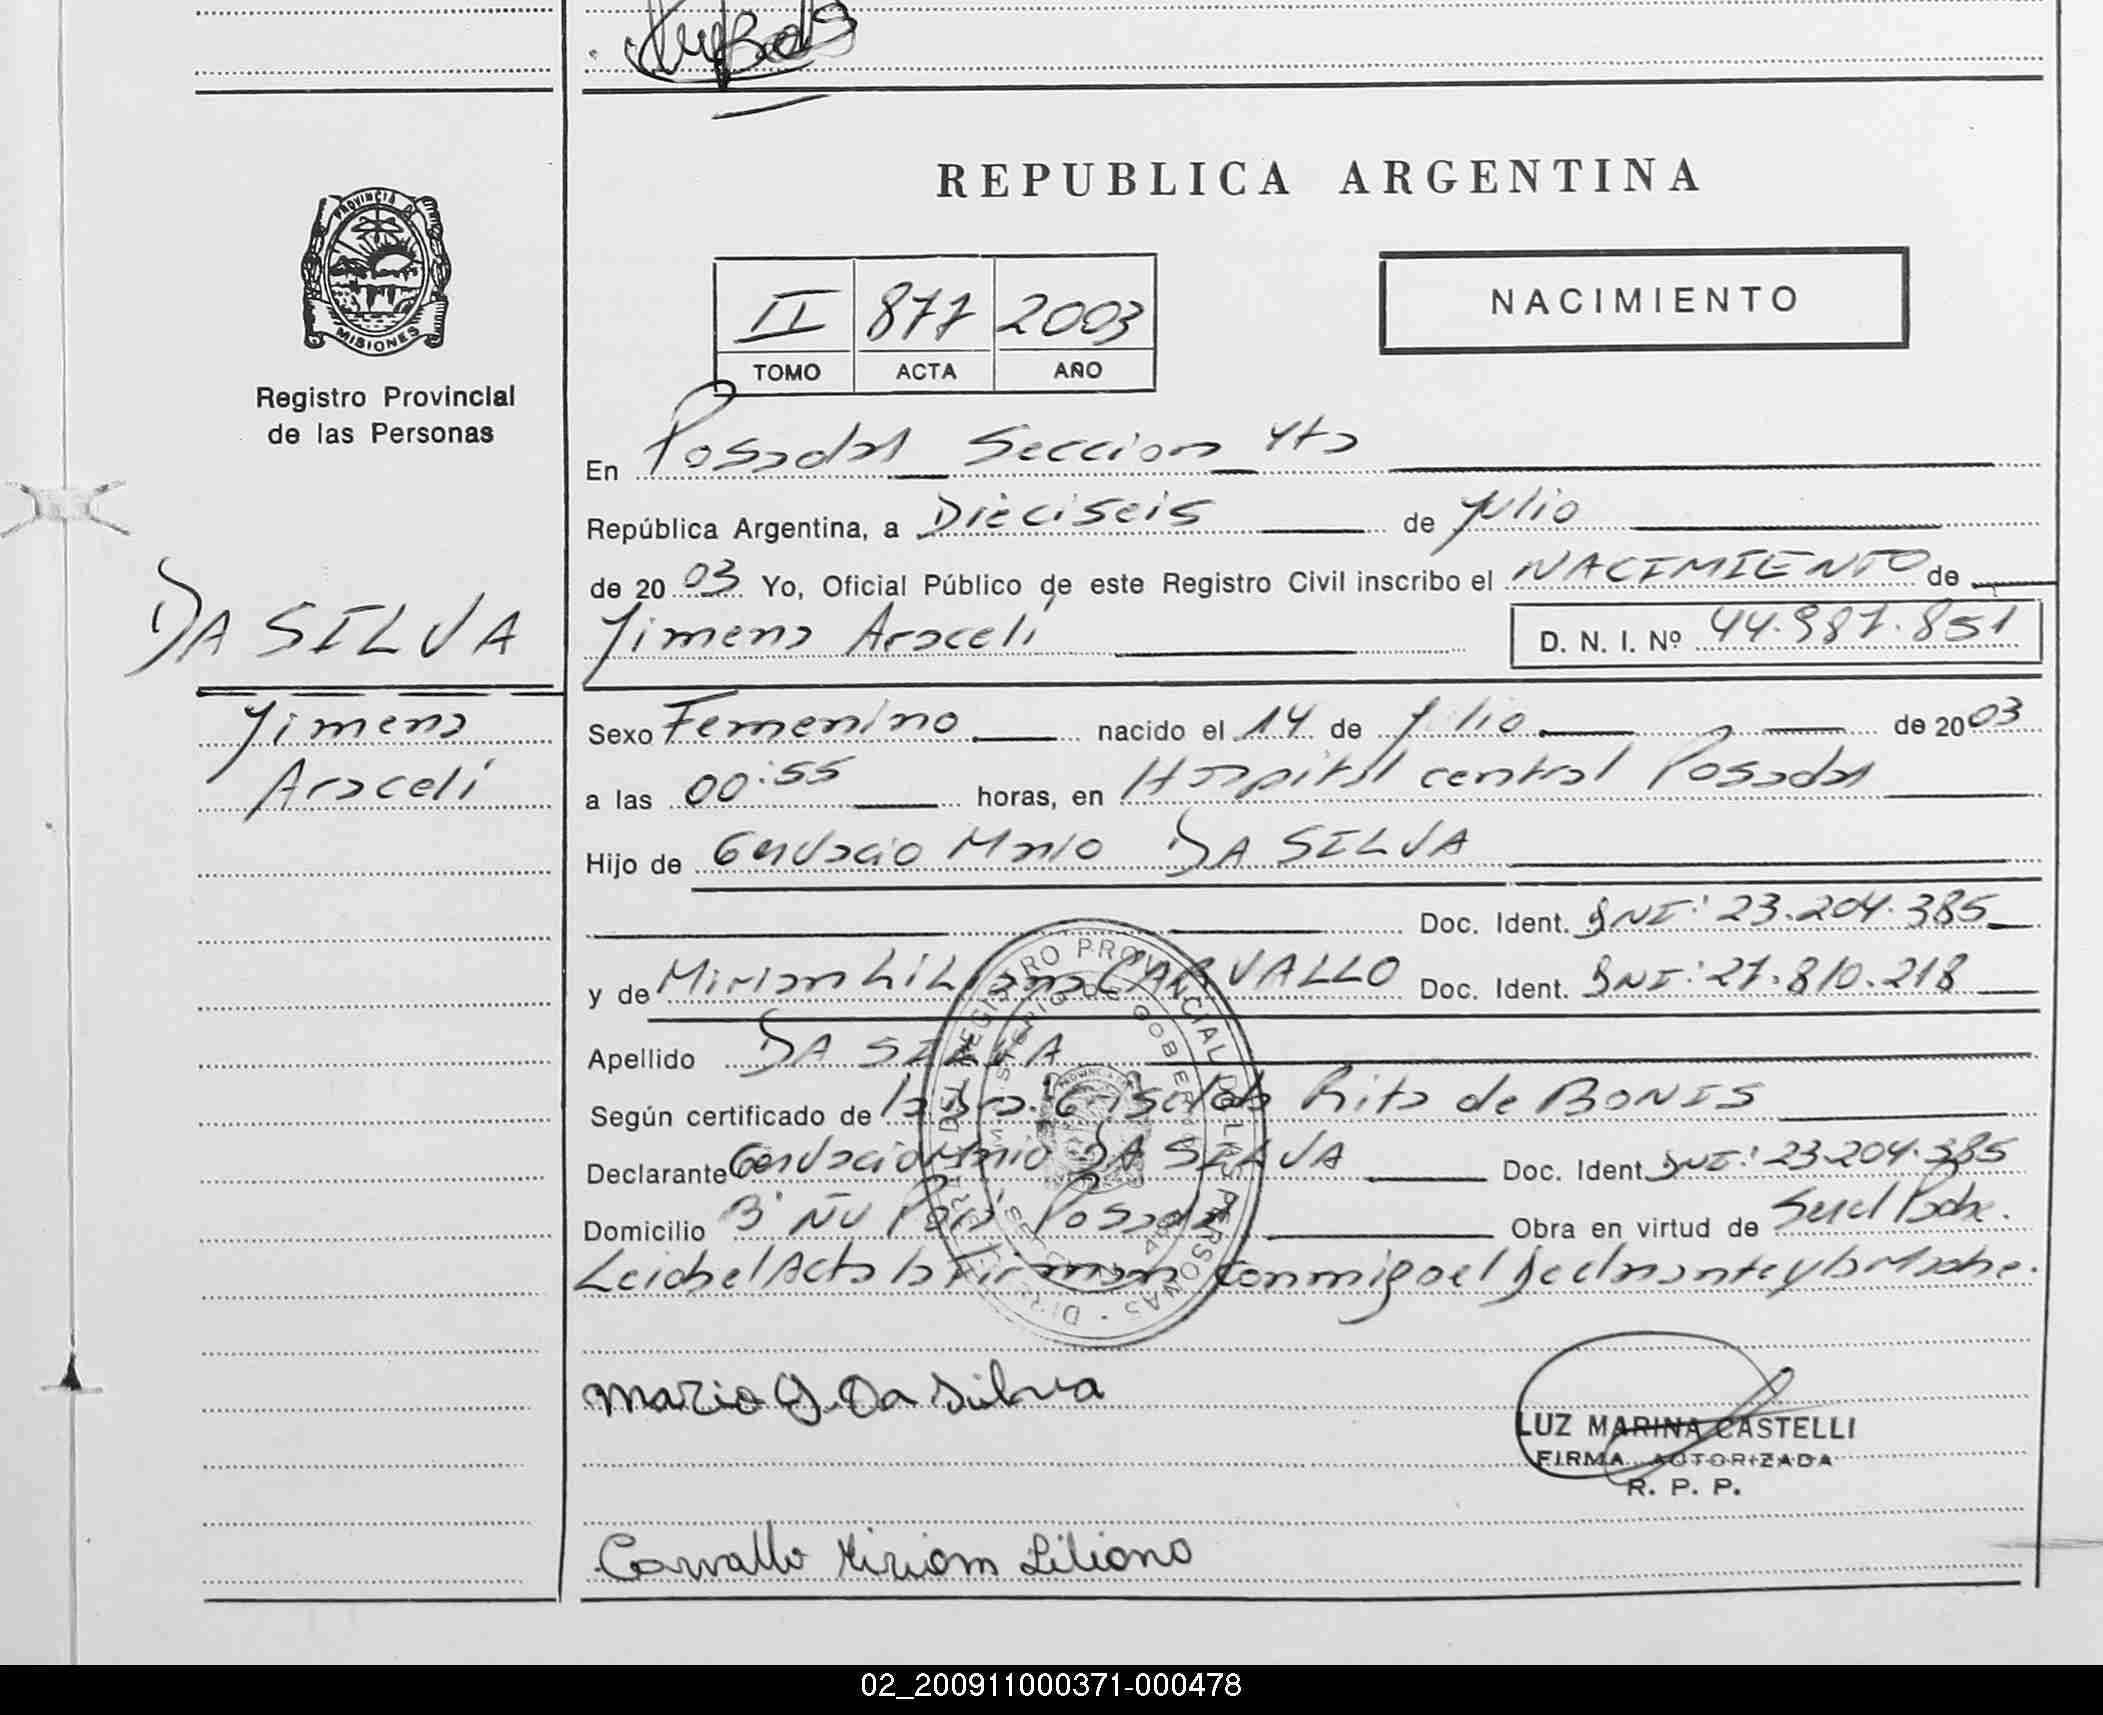 REPUBLICA ARGENTINA
PROVINCIA DE
MISIONES
Registro Provincial
de las Personas
II 877 2003
TOMO ACTA AÑO
NACIMIENTO
En Posadas Seccion 4ta
República Argentina, a Dieciseis de Julio
de 2003 Yo, Oficial Público de este Registro Civil inscribo el NACIMIENTO de
Jimena Araceli D. N. I. Nº 44.987.851
DA SILVA
Jimena
Araceli
Sexo Femenino nacido el 14 de Julio de 2003
a las 00:55 horas, en Hospital central Posadas
Hijo de Gervacio Mario DA SILVA
Doc. Ident. DNI: 23.204.385
y de Miriam Liliana CARVALLO Doc. Ident. DNI: 27.810.218
Apellido DA SILVA
Según certificado de la Dra. Giselda Rita de BONIS
Declarante Gervacio Mario DA SILVA Doc. Ident. DNI: 23.204.385
Domicilio B' ÑU Porá Posadas Obra en virtud de Ser el Padre.
Leida el Acta la firman conmigo el declarante y la Madre.
REGISTRO PROVINCIAL DE LAS PERSONAS
MINISTERIO DE GOBIERNO
Mario G. Da Silva
LUZ MARINA CASTELLI
FIRMA AUTORIZADA
R. P. P.
Carvallo Miriam Liliana
02_200911000371-000478